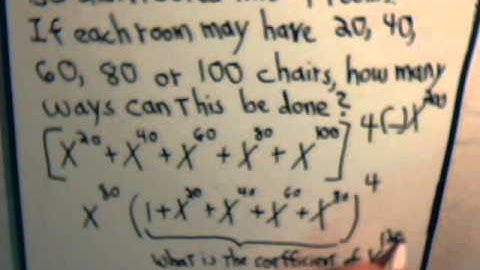 If each room may have 20, 40,
60, 80 or 100 chairs, how many
ways can this be done?
[X²⁰+X⁴⁰+X⁶⁰+X⁸⁰+X¹⁰⁰]⁴
X⁸⁰(1+X²⁰+X⁴⁰+X⁶⁰+X⁸⁰)⁴
What is the coefficient of